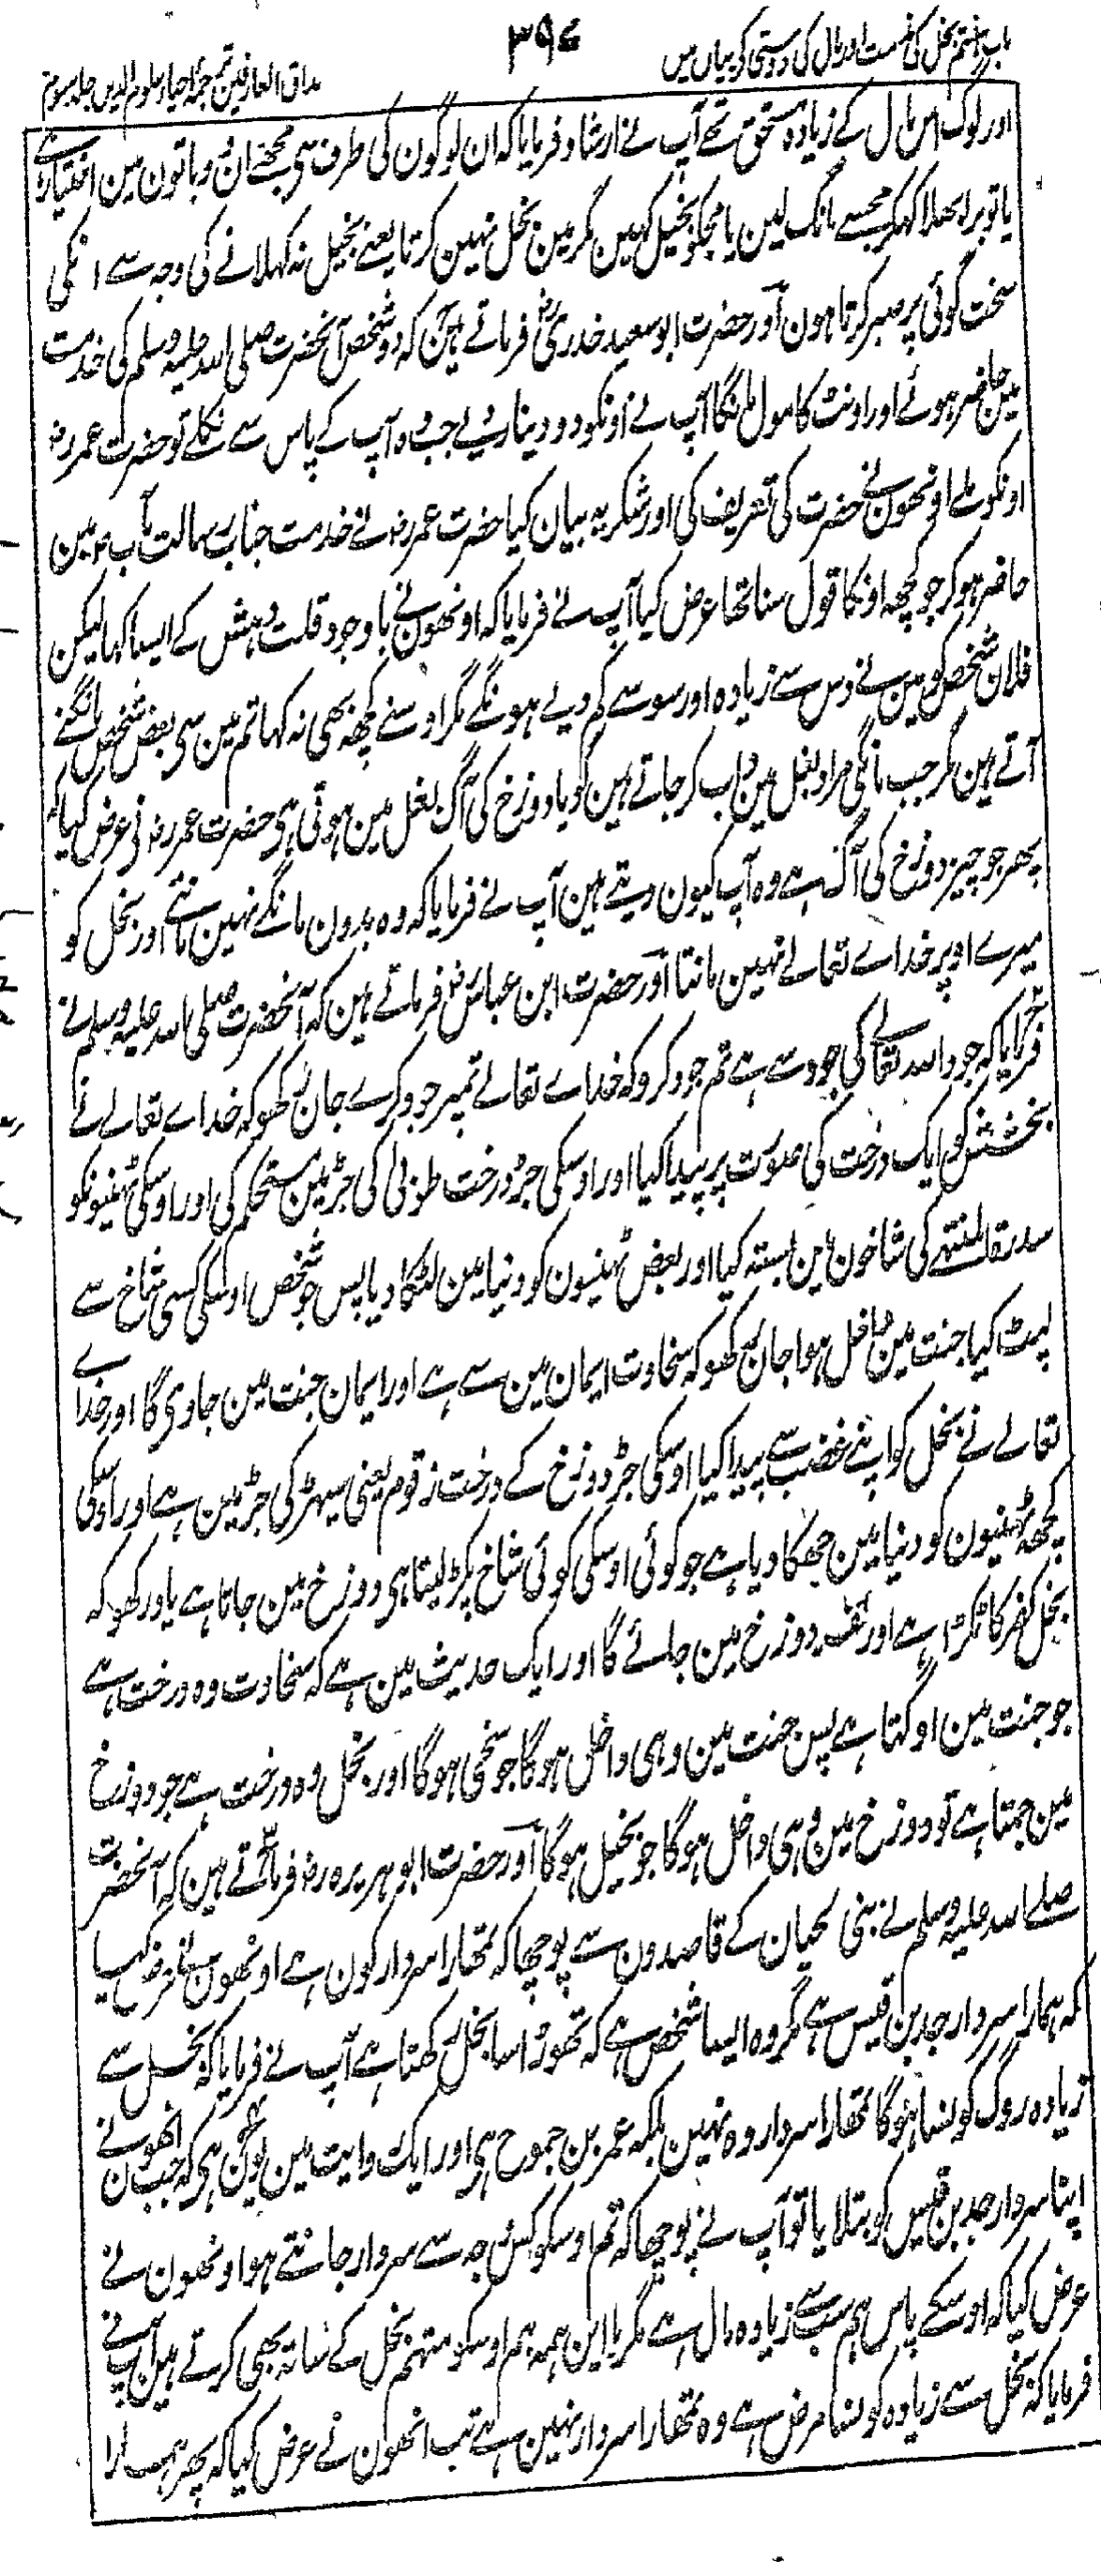 باب ہفتم بخل کی مذمت اور مال کی دوستی کی بیان میں
۳۹۷
مذاق العارفین ترجمہ احیاء علوم الدین جلد سوم
اور لوگ اس مال کے زیادہ مستحق تھے آپ نے ارشاد فرمایا کہ ان لوگون کی طرف سی مجھے ان دو باتون مین اختیار ہے
یا تو برا بھلا کہکر مجھسے مانگ لین یا مجکو بخیل کہین مگر مین بخل نہین کرتا یعنے بخیل نہ کہلانے کی وجہ سے انکی
سخت گوئی پر صبر کرتا ہون اور حضرت ابو سعید خدری رض فرماتے ہین کہ دو شخص آنحضرت صلی اللہ علیہ وسلم کی خدمت
مین حاضر ہوئے اور اونٹ کا مول مانگا آپ نے اونکو دو دینار دیے جب وہ آپ کے پاس سے نکلے تو حضرت عمر رض
اونکو ملے اونھون نے حضرت کی تعریف کی اور شکریہ بیان کیا حضرت عمر رض نے خدمت جناب رسالت مآب ص مین
حاضر ہو کر جو کچھہ اونکا قول سنا تھا عرض کیا آپ نے فرمایا کہ اونھون نے باوجود قلت دہش کے ایسا کہا لیکن
فلان شخص کو مین نے دس سے زیادہ اور سو سے کم دیے ہونگے مگر اوسنے کچھہ بھی نہ کہا تم مین سی بعض شخص مانگنے
آتے ہین مگر جب مانگی مراد بغل مین داب کر جاتے ہین گویا دوزخ کی آگ بغل مین ہوتی ہی حضرت عمر رض نی عرض کیا کہ
پھر جو چیز دوزخ کی آگ ہے وہ آپ کیون دیتے ہین آپ نے فرمایا کہ وہ بدون مانگے نہین مانتے اور بخل کو
میرے اوپر خداے تعالے نہین مانتا اور حضرت ابن عباس رض فرماتے ہین کہ آنحضرت صلی اللہ علیہ وسلم نے
فرمایا کہ جود اللہ تعالے کی جود سے ہے تم جود کرو کہ خداے تعالے تمپر جود کرے جان رکھو کہ خداے تعالے نے
بخشش کو ایک درخت کی صورت پر پیدا کیا اور اوسکی جڑ درخت طوبی کی جڑ مین مستحکم کی اور اوسکی ٹہنیونکو
سدرۃ المنتہے کی شاخون مین بستہ کیا اور بعض ٹہنیون کو دنیا مین لٹکا دیا پس جو شخص اوسکی کسی شاخ سے
لپٹ گیا جنت مین داخل ہوا جان رکھو کہ سخاوت ایمان مین سے ہے اور ایمان جنت مین جاوی گا اور خداے
تعالے نے بخل کو اپنے غضب سے پیدا کیا اوسکی جڑ دوزخ کے درخت زقوم یعنی سیہڑ کی جڑ مین ہے اور اوسکی
کچھہ ٹہنیون کو دنیا مین جھکا دیا ہے جو کوئی اوسکی کوئی شاخ پکڑ لیتا ہی دوزخ مین جاتا ہے یاد رکھو کہ
بخل کفر کا ٹکڑا ہے اور کفر دوزخ مین جائے گا اور ایک حدیث مین ہے کہ سخاوت وہ درخت ہے
جو جنت مین اوگتا ہے پس جنت مین وہی داخل ہوگا جو سخی ہوگا اور بخل وہ درخت ہے جو دوزخ
مین جمتا ہے تو دوزخ مین وہی داخل ہوگا جو بخیل ہوگا اور حضرت ابو ہریرہ رض فرماتے ہین کہ آنحضرت
صلے اللہ علیہ وسلم نے بنی لحیان کے قاصدون سے پوچھا کہ تمھارا سردار کون ہے اونھون نے عرض کیا
کہ ہمارا سردار جد بن قیس ہے مگر وہ ایسا شخص ہے کہ تھوڑا سا بخل رکھتا ہے آپ نے فرمایا کہ بخل سے
زیادہ روگ کونسا ہوگا تمھارا سردار وہ نہین بلکہ عمر بن جموح ہی اور ایک روایت مین یون ہی کہ جب انھون نے
اپنا سردار جد بن قیس کو بتلایا تو آپ نے پوچھا کہ تم اوسکو کس وجہ سے سردار جانتے ہو اونھون نے
عرض کیا کہ اوسکے پاس ہم سب سے زیادہ مال ہے مگر با این ہمہ ہم اوسکو متہم بخل کے ساتہ بھی کرتے ہین آپ نے
فرمایا کہ بخل سے زیادہ کونسا مرض ہے وہ تمھارا سردار نہین ہے تب انھون نے عرض کیا کہ پھر ہمارا